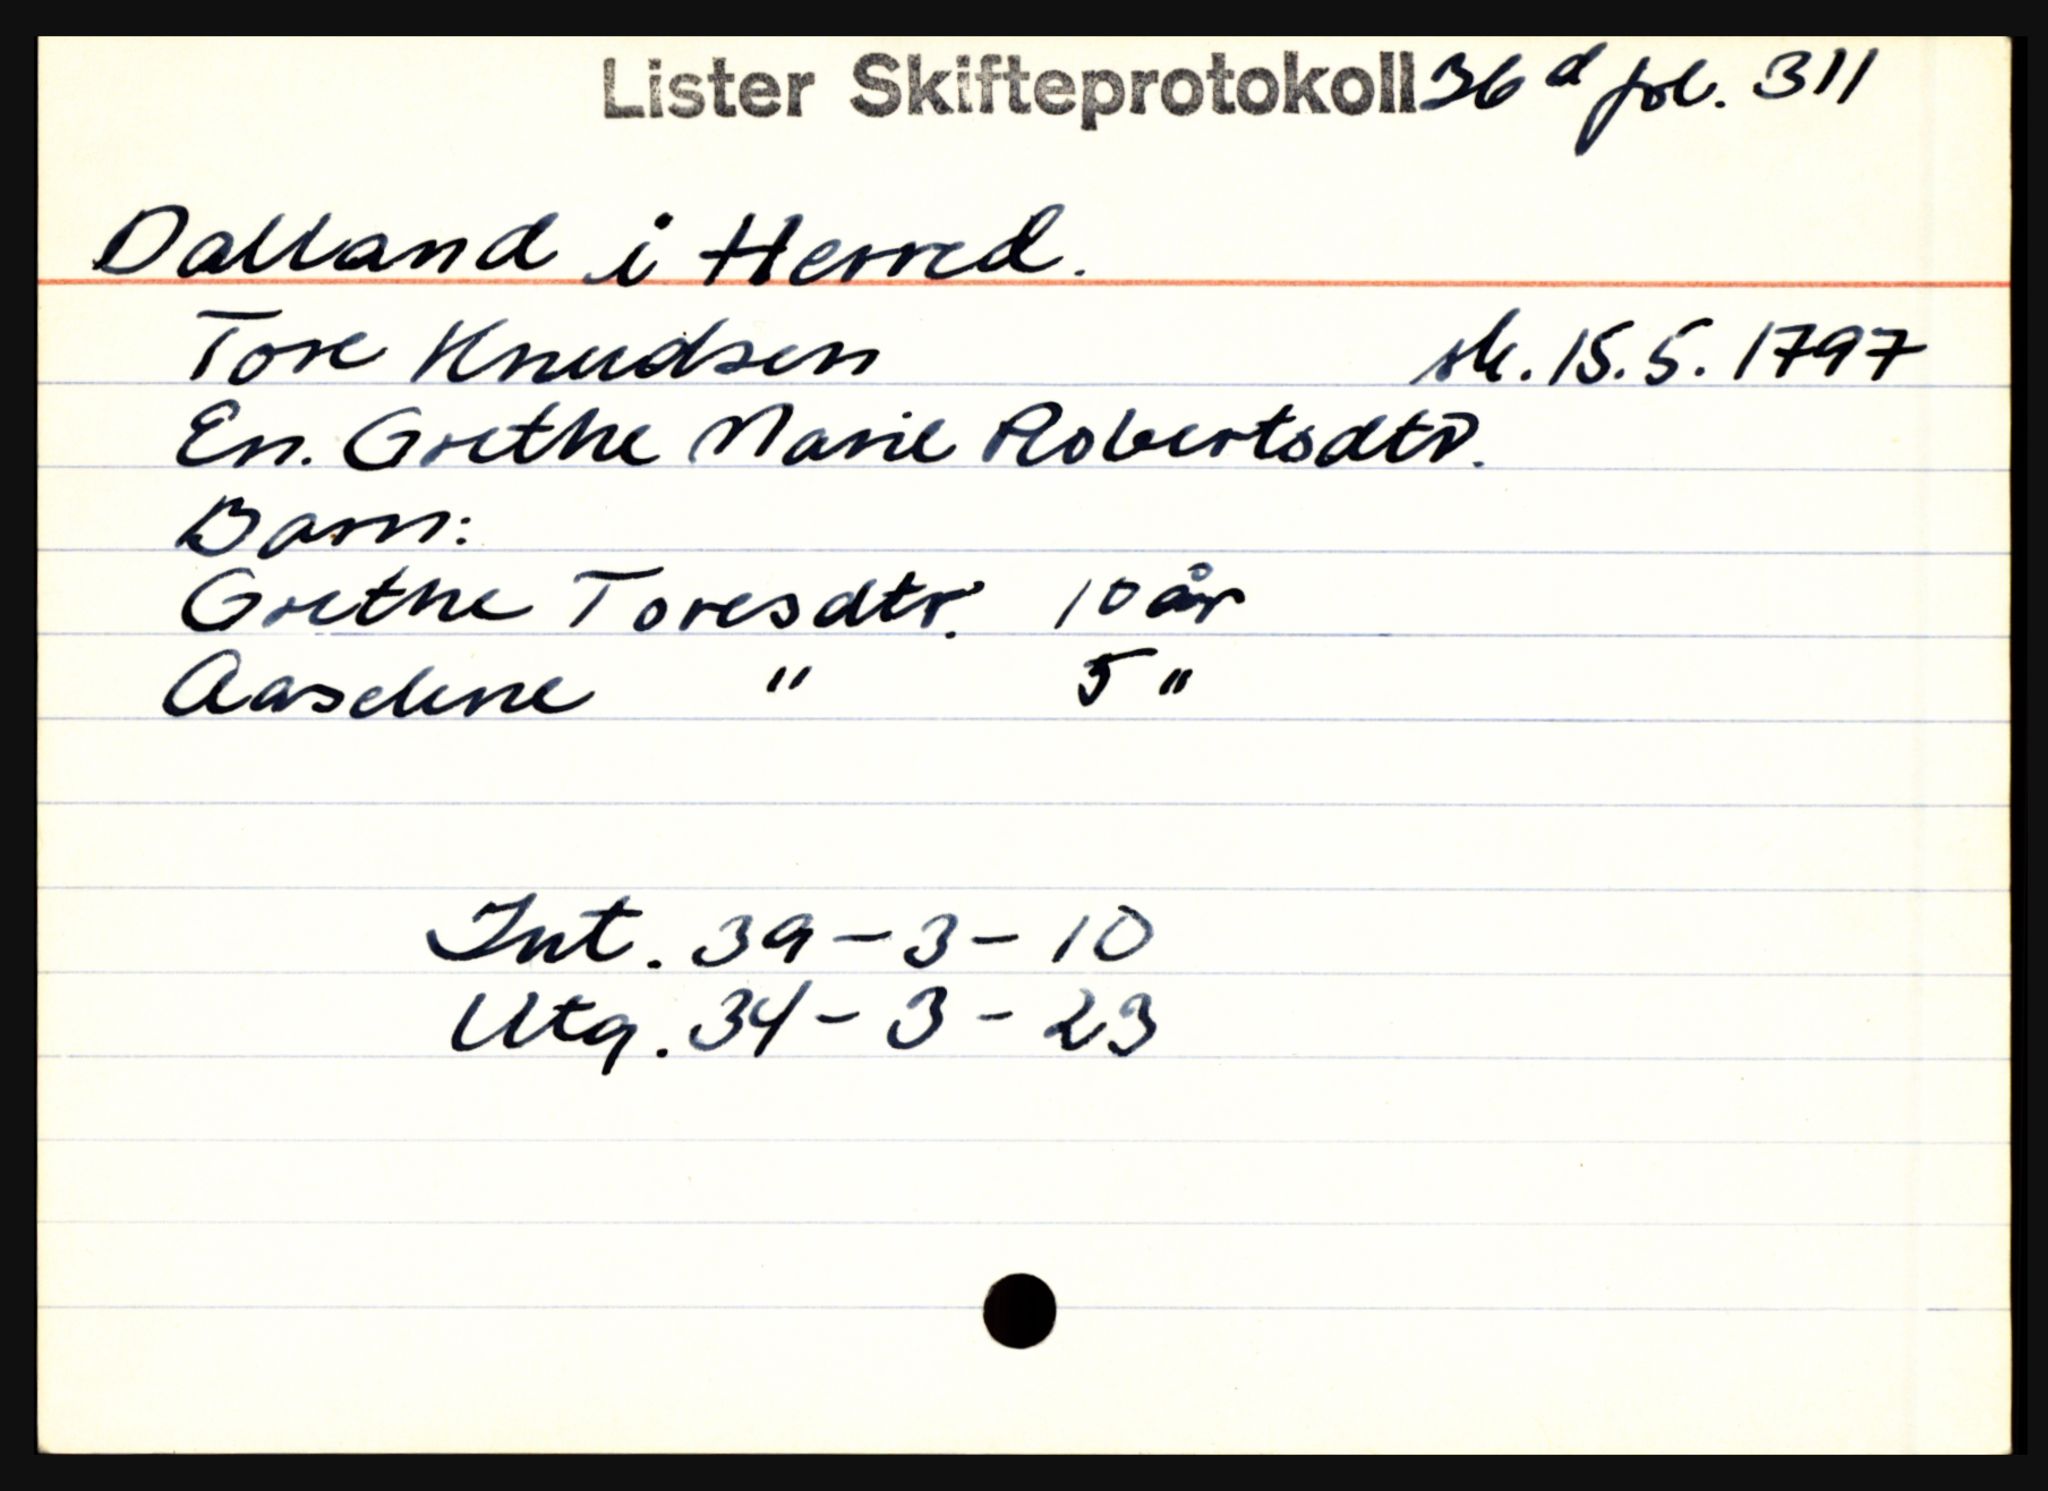 Lister Skifteprotokoll 36 d fol. 311
Dalland i Herred.
Tore Knudsen sk. 15.5.1797
En. Grethe Marie Robertsdtr.
Barn:
Grethe Toresdtr. 10 år
Aaselene " 5 "
Int. 39 - 3 - 10
Utg. 34 - 3 - 23